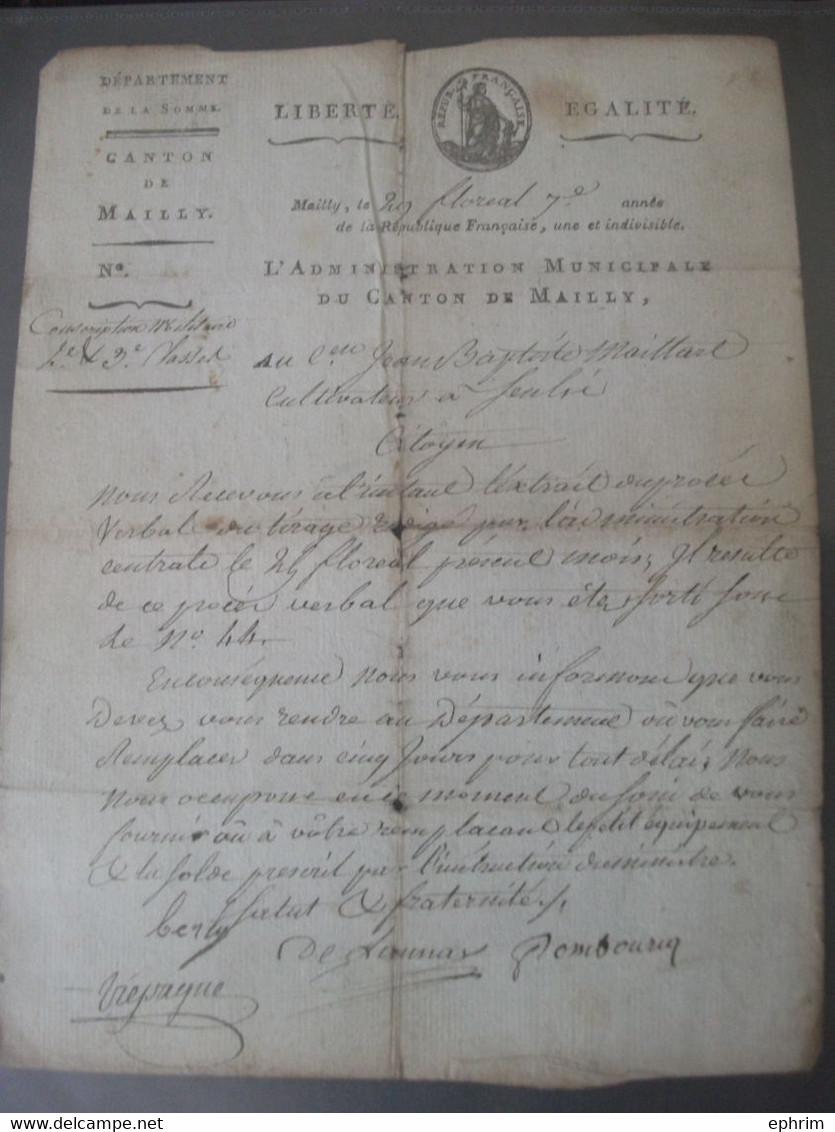 DÉPARTEMENT
DE LA SOMME.
CANTON
DE
MAILLY.
N°.
LIBERTÉ.
RÉPUB. FRANÇAISE.
EGALITÉ.
Mailly, le 29 floreal 7.e année
de la République Française, une et indivisible.
L'ADMINISTRATION MUNICIPALE
DU CANTON DE MAILLY,
Conscription Militaire
2.e & 3.e Classes
au C.en Jean Baptiste Maillart
Cultivateur a
Citoyen
Nous Recevons a l'instant l'extrait du procès
Verbal du tirage redigé par l'administration
centrale le 25 floreal présent mois, Il resulte
de ce procès verbal que vous êtes sorti sous
le N.o 44.
En conséquence Nous vous informons que vous
Devez vous rendre au Département ou vous faire
Remplacer dans cinq Jours pour tout délai, Nous
Nous occupons en ce moment du soin de vous
fournir où à vôtre remplaçant le petit équipement
& la Solde prescrit par l'instruction du ministre.
Salut & fraternité
ephrim © www.delcampe.net